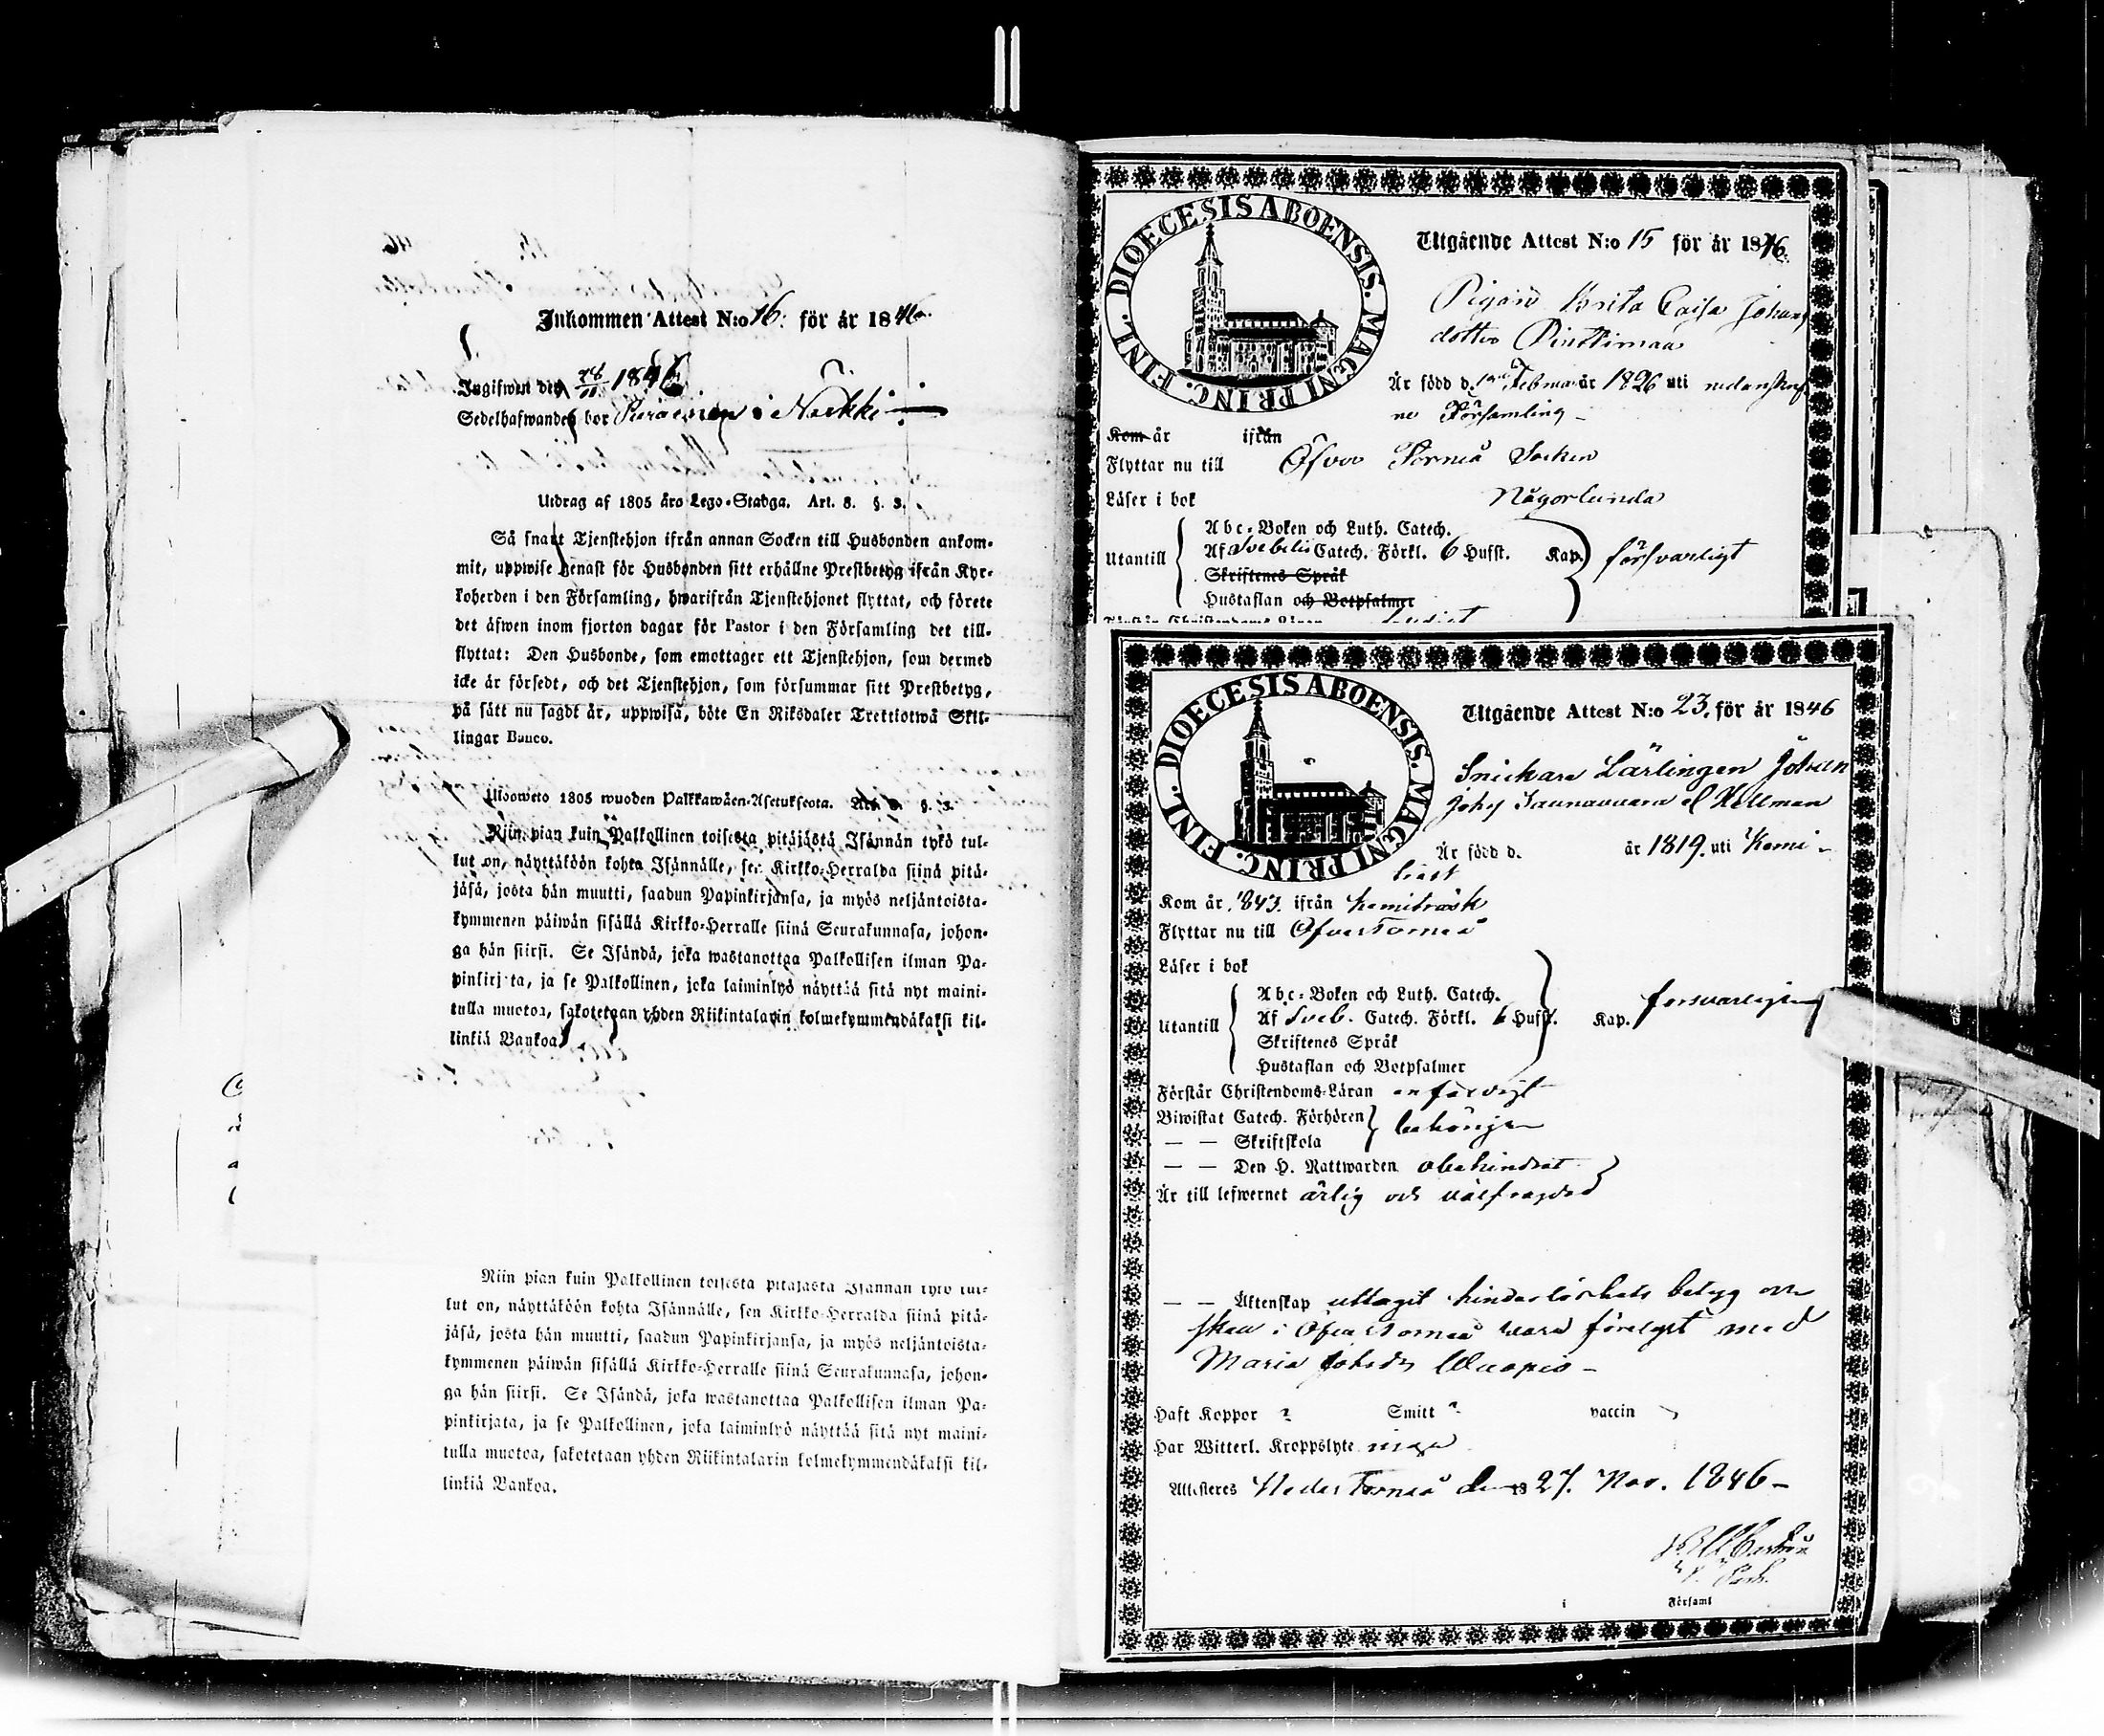 Inkommen Attest N:o 16. för år 1846.
Ingifwen den 28/11 1846
Sedelhafwanden bor i Närkki
Utdrag af 1805 års Lego-Stadga. Art. 8. §. 3.
Så snart Tjenstehjon ifrån annan Socken till Husbonden ankom-
mit, uppwise genast för Husbonden sitt erhållne Prestbetyg ifrån Kyr-
koherden i den Församling, hwarifrån Tjenstehjonet flyttat, och förete
det äfwen inom fjorton dagar för Pastor i den Församling det till-
flyttat: Den Husbonde, som emottager ett Tjenstehjon, som dermed
icke är försedt, och det Tjenstehjon, som försummar sitt Prestbetyg,
på sätt nu sagdt är, uppwisa, böte En Riksdaler Trettiotwå Skil-
lingar Banco.
Ulosweto 1805 wuoden Palkkawäen-Asetuksesta. Art. 8. §. 3.
Niin pian kuin Palkollinen toisesta pitäjästä Isännän tykö tul-
lut on, näyttäköön kohta Isännälle, sen Kirkko-Herralda siinä pitä-
jäsä, josta hän muutti, saadun Papinkirjansa, ja myös neljäntoista-
kymmenen päiwän sisällä Kirkko-Herralle siinä Seurakunnasa, johon-
ga hän siirsi. Se Isändä, joka wastanottaa Palkollisen ilman Pa-
pinkirjata, ja se Palkollinen, joka laiminlyö näyttää sitä nyt maini-
tulla muotoa, sakotetaan yhden Riikintalarin kolmekymmendäkaksi kil-
linkiä Bankoa.
Niin pian kuin Palkollinen toisesta pitäjästä Isännän tykö tul-
lut on, näyttäköön kohta Isännälle, sen Kirkko-Herralda siinä pitä-
jäsä, josta hän muutti, saadun Papinkirjansa, ja myös neljäntoista-
kymmenen päiwän sisällä Kirkko-Herralle siinä Seurakunnasa, johon-
ga hän siirsi. Se Isändä, joka wastanottaa Palkollisen ilman Pa-
pinkirjata, ja se Palkollinen, joka laiminlyö näyttää sitä nyt maini-
tulla muotoa, sakotetaan yhden Riikintalarin kolmekymmendäkaksi kil-
linkiä Bankoa.
DIOECESIS ABOENSIS. MAGNI PRINC. FINL.
Utgående Attest N:o 15 för år 1846.
Pigan Brita Caisa Johans
dotter Pinttimaa
Är född d. Februari år 1826 uti nedanskref
ne Församling -
Kom år ifrån
Flyttar nu till Öfver Torneå Socken
Läser i bok Någorlunda
Utantill
Abc-Boken och Luth. Catech.
Af Svebelii Catech. Förkl. 6 Husst. Kap. försvarligt
Skriftenes Språk
Hustaflan och Botpsalmer
Förstår Christendoms-Läran
DIOECESIS ABOENSIS. MAGNI PRINC. FINL.
Utgående Attest N:o 23. för år 1846
Snickare Lärlingen Johan
Johss Saunavaara el Hellman
Är född d. år 1819. uti Kemi-
träsk
Kom år 1843. ifrån Kemiträsk
Flyttar nu till Öfver Torneå
Läser i bok
Utantill
Abc-Boken och Luth. Catech.
Af Sveb. Catech. Förkl. 6 Husst. Kap. försvarligen
Skriftenes Språk
Hustaflan och Botpsalmer
Förstår Christendoms-Läran enfärdigt
Biwistat Catech. Förhören
— — Skriftskola
behörigen
— — Den H. Nattwarden obehindrat
Är till lefwernet ärlig och välfrägdad
— — Äktenskap uttagit hinderlöshets betyg och
skall i Öfver Torneå vara förelyst med
Maria Johsdr Wuopio -
Haft Koppor ? Smitt ? vaccin
Har Witterl. Kroppslyte inga
Attesteres Neder Torneå den 18 27. Nov. 1846 -
i Församl